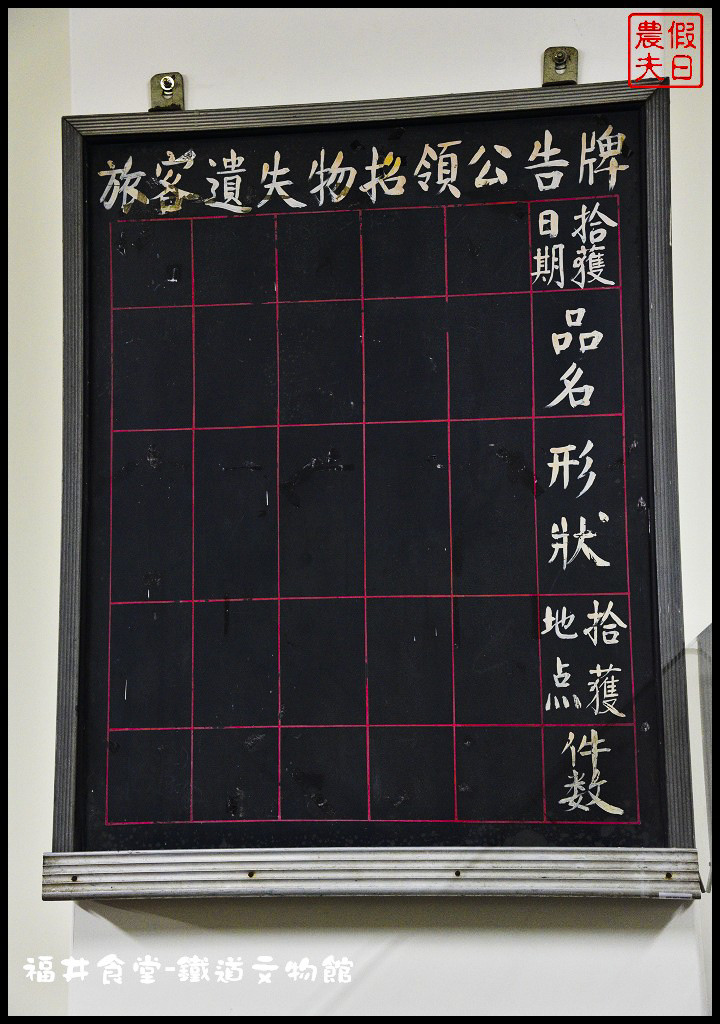 假日
農夫
旅客遺失物招領公告牌
拾獲
日期
品名
形狀
拾獲
地点
件数
福井食堂-鐵道文物館